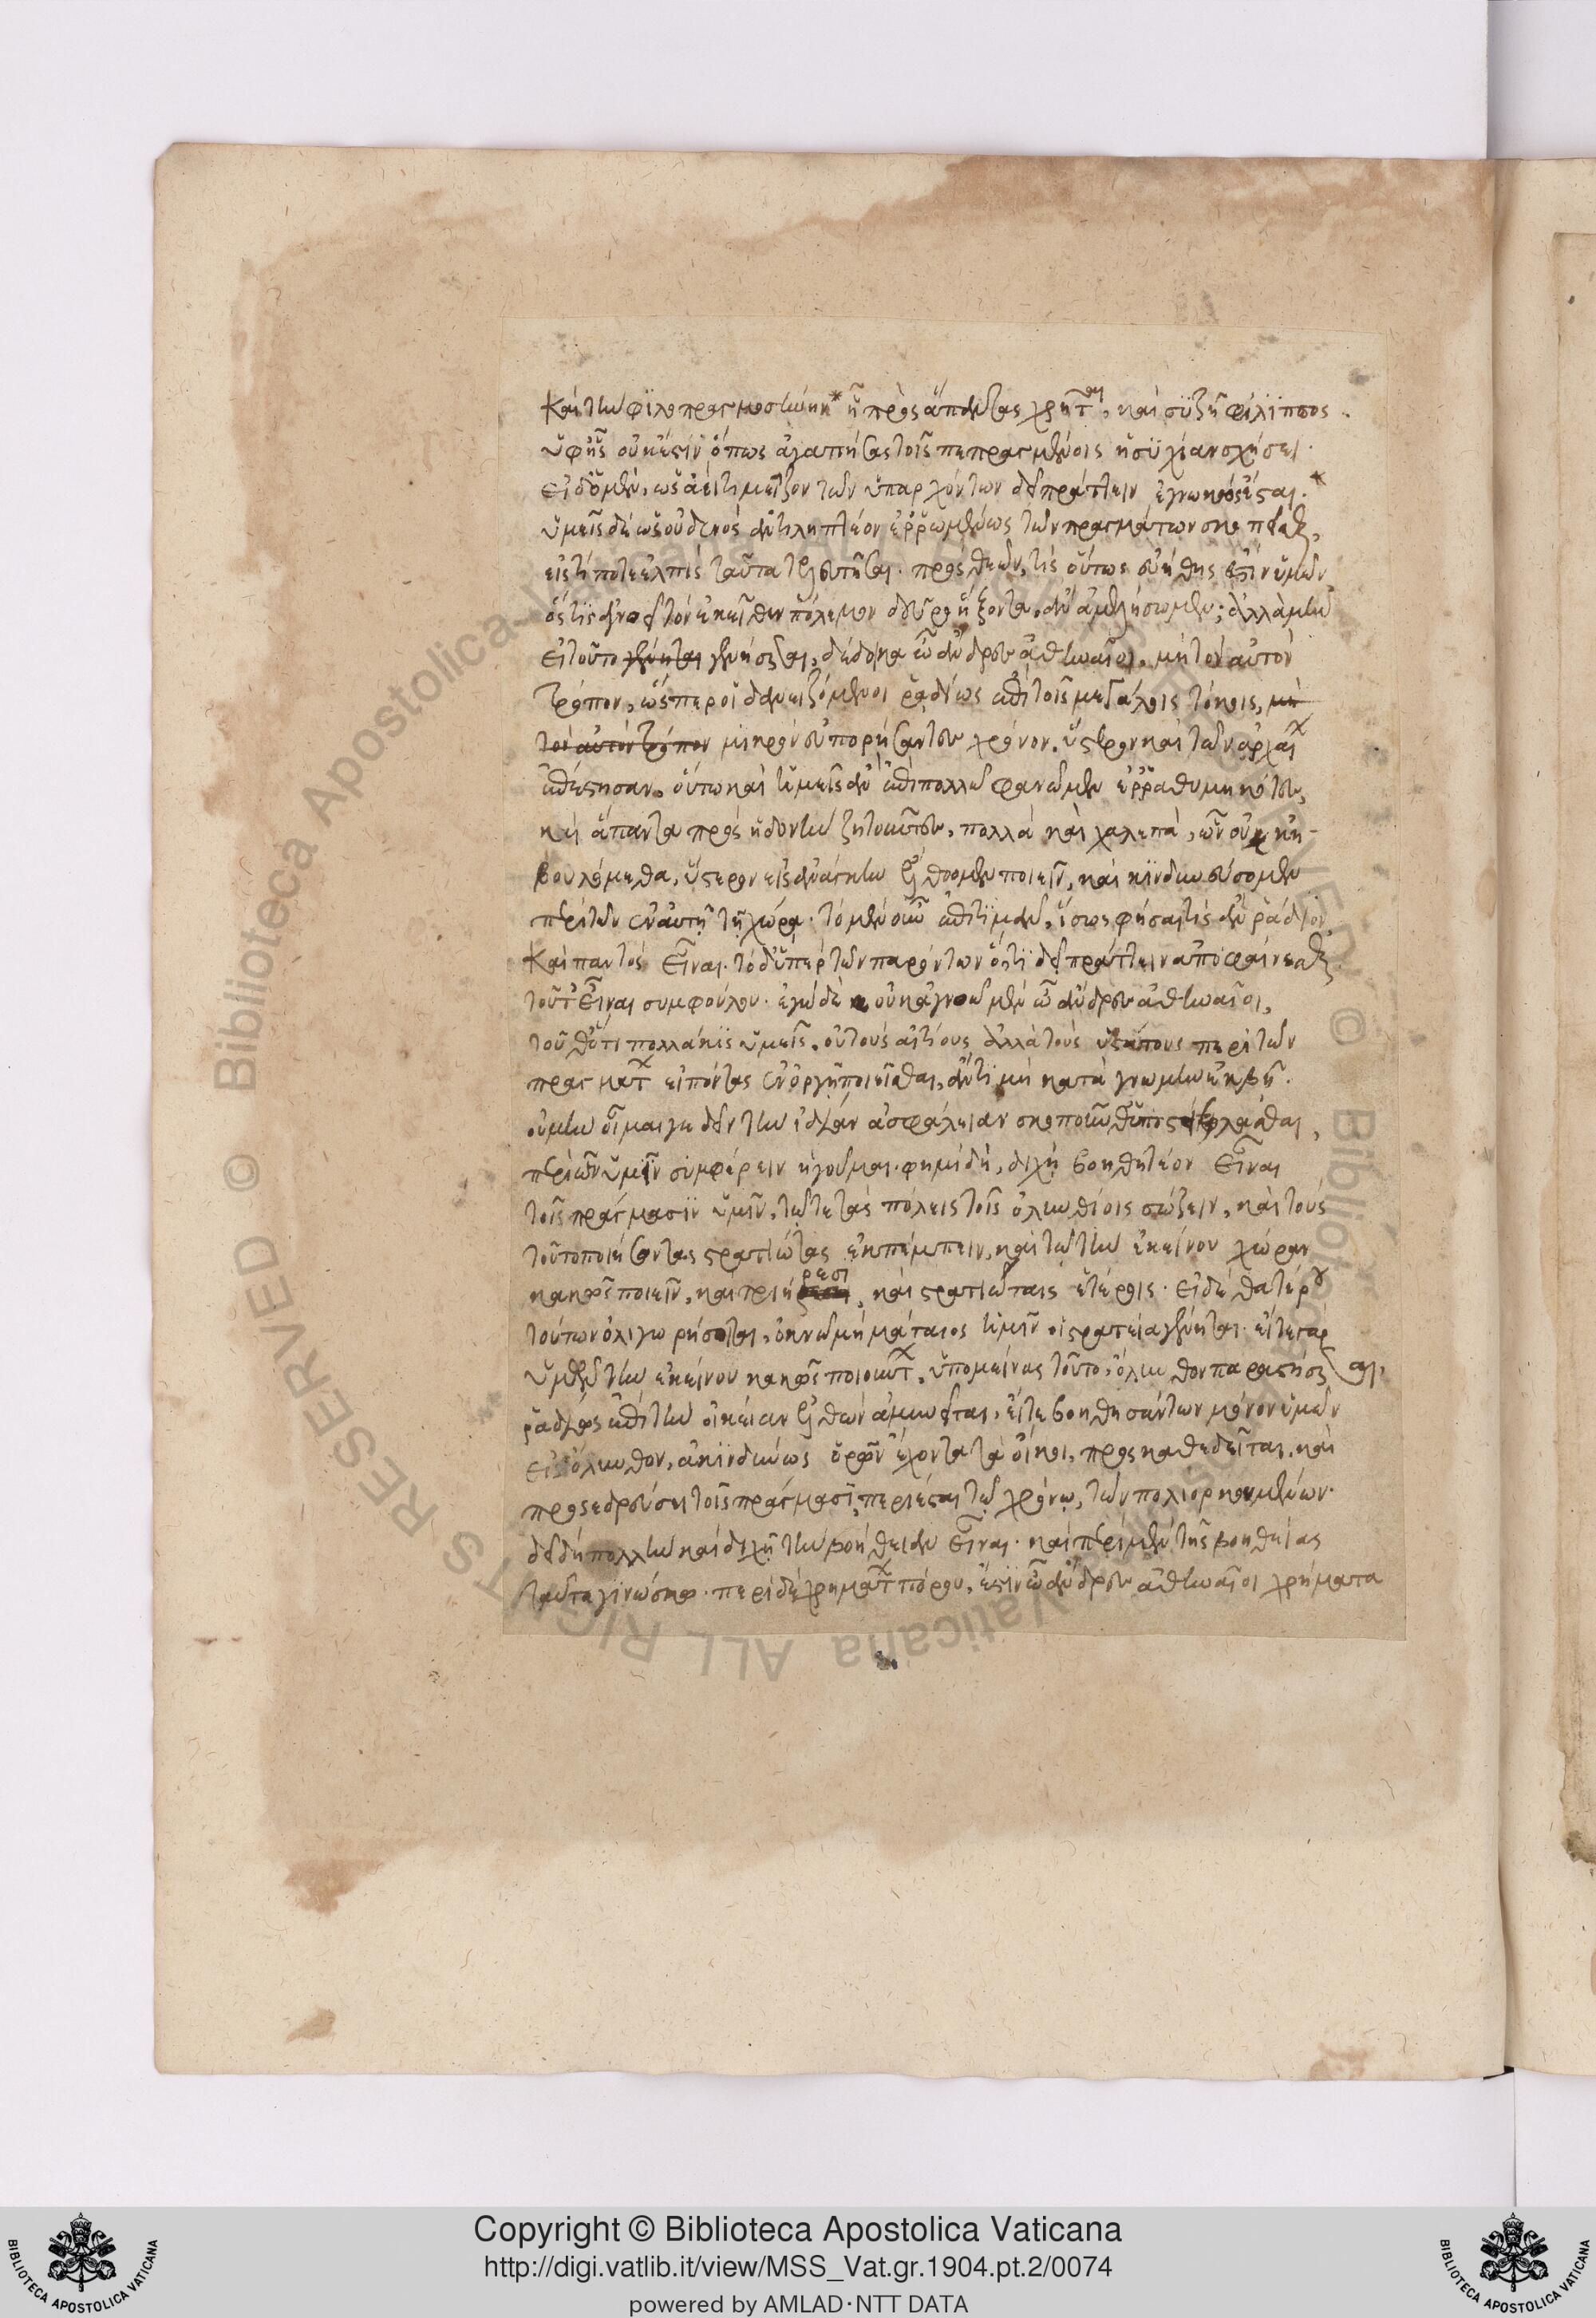 καὶ τὴν φιλοπραγμοσύνην ᾗ πρὸς ἅπαντας χρῆται, καὶ συζῇ φίλιππος
ὑφ' ἧς οὐκ ἔστιν ὅπως ἀγαπήσας τοῖς πεπραγμένοις ἡσυχίαν σχήσει.
εἰ δ' ὁ μὲν, ὡς ἀεί τι μεῖζον τῶν ὑπαρχόντων δεῖ πράττειν ἐγνωκὼς ἔσται.
ὑμεῖς δὲ ὡς οὐδενὸς ἀντιληπτέον ἐρρωμένως τῶν πραγμάτων σκοπεῖσθε,
εἰς τί ποτε ἐλπὶς ταῦτα τελευτῆσαι. πρὸς θεῶν, τίς οὕτως εὐήθης ἐστὶν ὑμῶν
ὅστις ἀγνοεῖ τὸν ἐκεῖθεν πόλεμον δεῦρο ἥξοντα, ἂν ἀμελήσωμεν; ἀλλὰ μὴν
εἰ τοῦτο γένηται γενήσεται, δέδοικα ὦ ἄνδρες ἀθηναῖοι, μὴ τὸν αὐτὸν
τρόπον, ὥσπερ οἱ δανειζόμενοι ῥαδίως ἐπὶ τοῖς μεγάλοις τόκοις, μὴ
τὸν αὐτὸν τρόπον μικρὸν εὐπορήσαντες χρόνον, ὕστερον καὶ τῶν ἀρχαίων
ἀπέστησαν. οὕτω καὶ ἡμεῖς ἂν ἐπὶ πολλῷ φανῶμεν ἐρραθυμηκότες,
καὶ ἅπαντα πρὸς ἡδονὴν ζητοῦντες, πολλὰ καὶ χαλεπὰ, ὧν οὐκ
βουλόμεθα, ὕστερον εἰς ἀνάγκην ἔλθομεν ποιεῖν, καὶ κινδυνεύσομεν
περὶ τῶν ἐν αὐτῇ τῇ χώρᾳ. τὸ μὲν οὖν ἐπιτιμᾶν, ἴσως φήσαι τὶς ἂν ῥάδιον,
καὶ παντὸς εἶναι. τὸ δ' ὑπὲρ τῶν παρόντων ὅ,τι δεῖ πράττειν ἀποφαίνεσθαι
τοῦτ' εἶναι συμβούλου. ἐγὼ δὲ οὐκ ἀγνοῶ μὲν ὦ ἄνδρες ἀθηναῖοι,
τοῦθ' ὅτι πολλάκις ὑμεῖς, οὐ τοὺς αἰτίους ἀλλὰ τοὺς ὑστάτους περὶ τῶν
πραγμάτων εἰπόντας ἐν ὀργῇ ποιεῖσθαι, ἄν τι μὴ κατὰ γνώμην ἐκβῇ.
οὐ μὴν οἶμαί γε δεῖν τὴν ἰδίαν ἀσφάλειαν σκοποῦνθ' ὑποστείλασθαι,
περὶ ὧν ὑμῖν συμφέρειν ἡγοῦμαι. φημὶ δὴ, διχῇ βοηθητέον εἶναι
τοῖς πράγμασιν ὑμῖν, τῷ τε τὰς πόλεις τοῖς ὀλυνθίοις σώζειν, καὶ τοὺς
τοῦτο ποιήσαντας στρατιώτας ἐκπέμπειν, καὶ τῷ τὴν ἐκείνου χώραν
κακῶς ποιεῖν, καὶ τριήρεσι, καὶ στρατιώταις ἑτέροις. εἰ δὲ θατέρου
τούτων ὀλιγωρήσεται, ὀκνῶ μὴ μάταιος ἡμῖν ἡ στρατεία γένηται. εἴτε γὰρ
ὑμῶν τὴν ἐκείνου κακῶς ποιούντων, ὑπομείνας τοῦτο, ὄλυνθον παραστήσεται,
ῥαδίως ἐπὶ τὴν οἰκείαν ἐλθὼν ἀμυνεῖται, εἴτε βοηθησάντων μόνον ὑμῶν
εἰς ὄλυνθον, ἀκινδύνως ὁρῶν ἔχοντα τὰ οἴκοι, προσκαθεδεῖται, καὶ
προσεδρεύσει τοῖς πράγμασι, περιέσται τῷ χρόνῳ, τῶν πολιορκουμένων.
δεῖ δὴ πολλὴν καὶ διχῇ τὴν βοήθειαν εἶναι. καὶ περὶ μὲν τῆς βοηθείας
ταῦτα γινώσκω. περὶ δὲ χρημάτων πόρου, ἔστιν ὦ ἄνδρες ἀθηναῖοι χρήματα
Copyright © Biblioteca Apostolica Vaticana
http://digi.vatlib.it/view/MSS_Vat.gr.1904.pt.2/0074
powered by AMLAD·NTT DATA